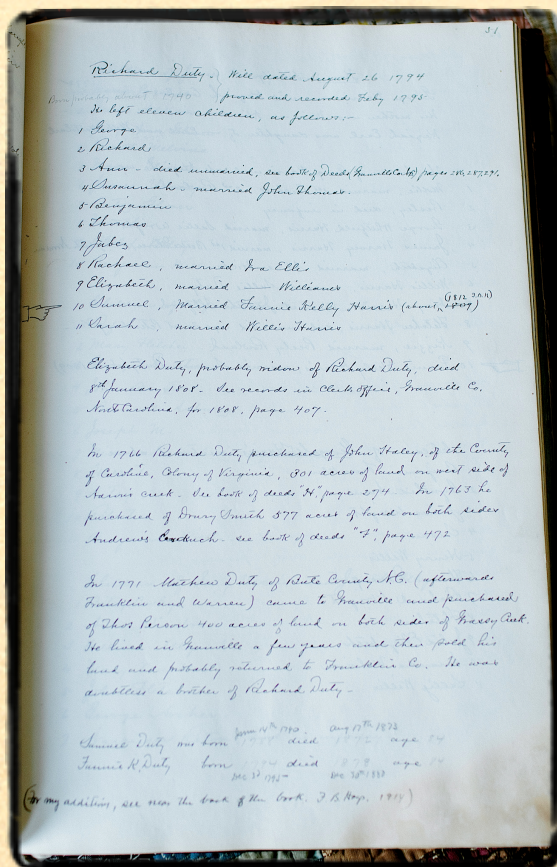 31
Richard Duty - Will dated August 26 1794
proved and recorded Feby 1795
He left eleven children, as follows:-
1 George
2 Richard
3 Ann - died unmarried, see book of Deeds (Granville Co. NC) pages 286, 287, 291.
4 Susannah - married John Thomas.
5 Benjamin
6 Thomas
7 Jabez
8 Rachael, married Ira Ellis
9 Elizabeth, married — Williams
(1812
10 Samuel, Married Fannie Kelly Harris (about
11 Sarah, married Willis Harris
Elizabeth Duty, probably widow of Richard Duty, died
8th January 1808 - See records in Clerk office, Granville Co.
North Carolina, for 1808, page 407.
In 1766 Richard Duty purchased of John Haley, of the County
of Caroline, Colony of Virginia, 301 acres of land on west side of
Aarons creek - See book of deeds "H", page 274 In 1763 he
purchased of Drury Smith 577 acres of land on both sides
Andrew's - see book of deeds "F", page 472
In 1771 Mathew Duty of Bute County N.C. (afterwards
Franklin and Warren) came to Granville and purchased
of Thos Person 400 acres of land on both sides of Grassy Creek.
He lived in Granville a few years and then sold his
land and probably returned to Franklin Co. He was
doubtless a brother of Richard Duty -
Aug 17th 1873
Samuel Duty was born died age 84
Fannie K. Duty born died age
(For my addition, see near the back of the book. F. B. Hays. 1914)